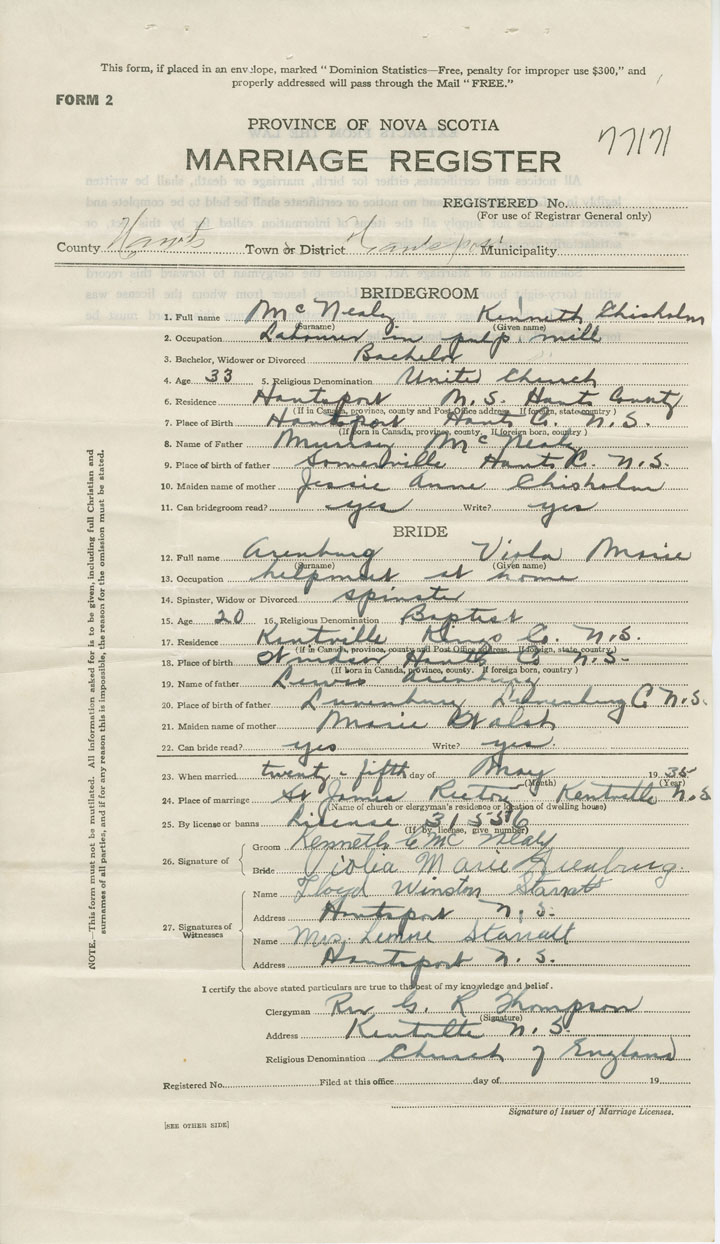 This form, if placed in an envelope, marked "Dominion Statistics—Free, penalty for improper use $300," and
properly addressed will pass through the Mail "FREE."
FORM 2
PROVINCE OF NOVA SCOTIA
77171
MARRIAGE REGISTER
REGISTERED No.
(For use of Registrar General only)
County Hants Town or District Hantsport Municipality
BRIDEGROOM
1. Full name McNealy Kenneth Chisholm
(Surname) (Given name)
2. Occupation Labourer in pulp mill
3. Bachelor, Widower or Divorced Bachelor
4. Age 33 5. Religious Denomination United Church
6. Residence Hantsport N.S. Hants County
(If in Canada, province, county and Post Office address. If foreign, state country)
7. Place of Birth Hantsport Hants Co. N.S.
(If born in Canada, province, county. If foreign born, country)
8. Name of Father Murray McNealy
9. Place of birth of father Somerville Hants Co. N.S.
10. Maiden name of mother Jessie Anne Chisholm
11. Can bridegroom read? yes Write? yes
BRIDE
12. Full name Arenburg Viola Marie
(Surname) (Given name)
13. Occupation helpmeet at home
14. Spinster, Widow or Divorced spinster
15. Age 20 16. Religious Denomination Baptist
17. Residence Kentville Kings Co. N.S.
(If in Canada, province, county and Post Office address. If foreign, state, country)
18. Place of birth Windsor Hants Co N.S.
(If born in Canada, province, county. If foreign born, country)
19. Name of father Lewis Arenburg
20. Place of birth of father Lunenburg Lunenburg C N.S.
21. Maiden name of mother Marie Walsh
22. Can bride read? yes Write? yes.
23. When married twenty-fifth day of May 1935
(Month) (Year)
24. Place of marriage St James Rectory Kentville N.S
(Name of church or clergyman's residence or location of dwelling house)
25. By license or banns License 315516
(If by license, give number)
26. Signature of
Groom Kenneth C McNealy
Bride Viola Marie Arenburg
27. Signatures of Witnesses
Name Lloyd Winston Starratt
Address Hantsport N.S.
Name Mrs. Starratt
Address Hantsport N.S.
I certify the above stated particulars are true to the best of my knowledge and belief.
Clergyman Rev G. R Thompson
(Signature)
Address Kentville N.S.
Religious Denomination Church of England
Registered No. Filed at this office day of 19
Signature of Issuer of Marriage Licenses.
[SEE OTHER SIDE]
NOTE.—This form must not be mutilated. All information asked for is to be given, including full Christian and
surnames of all parties, and if for any reason this is impossible, the reason for the omission must be stated.